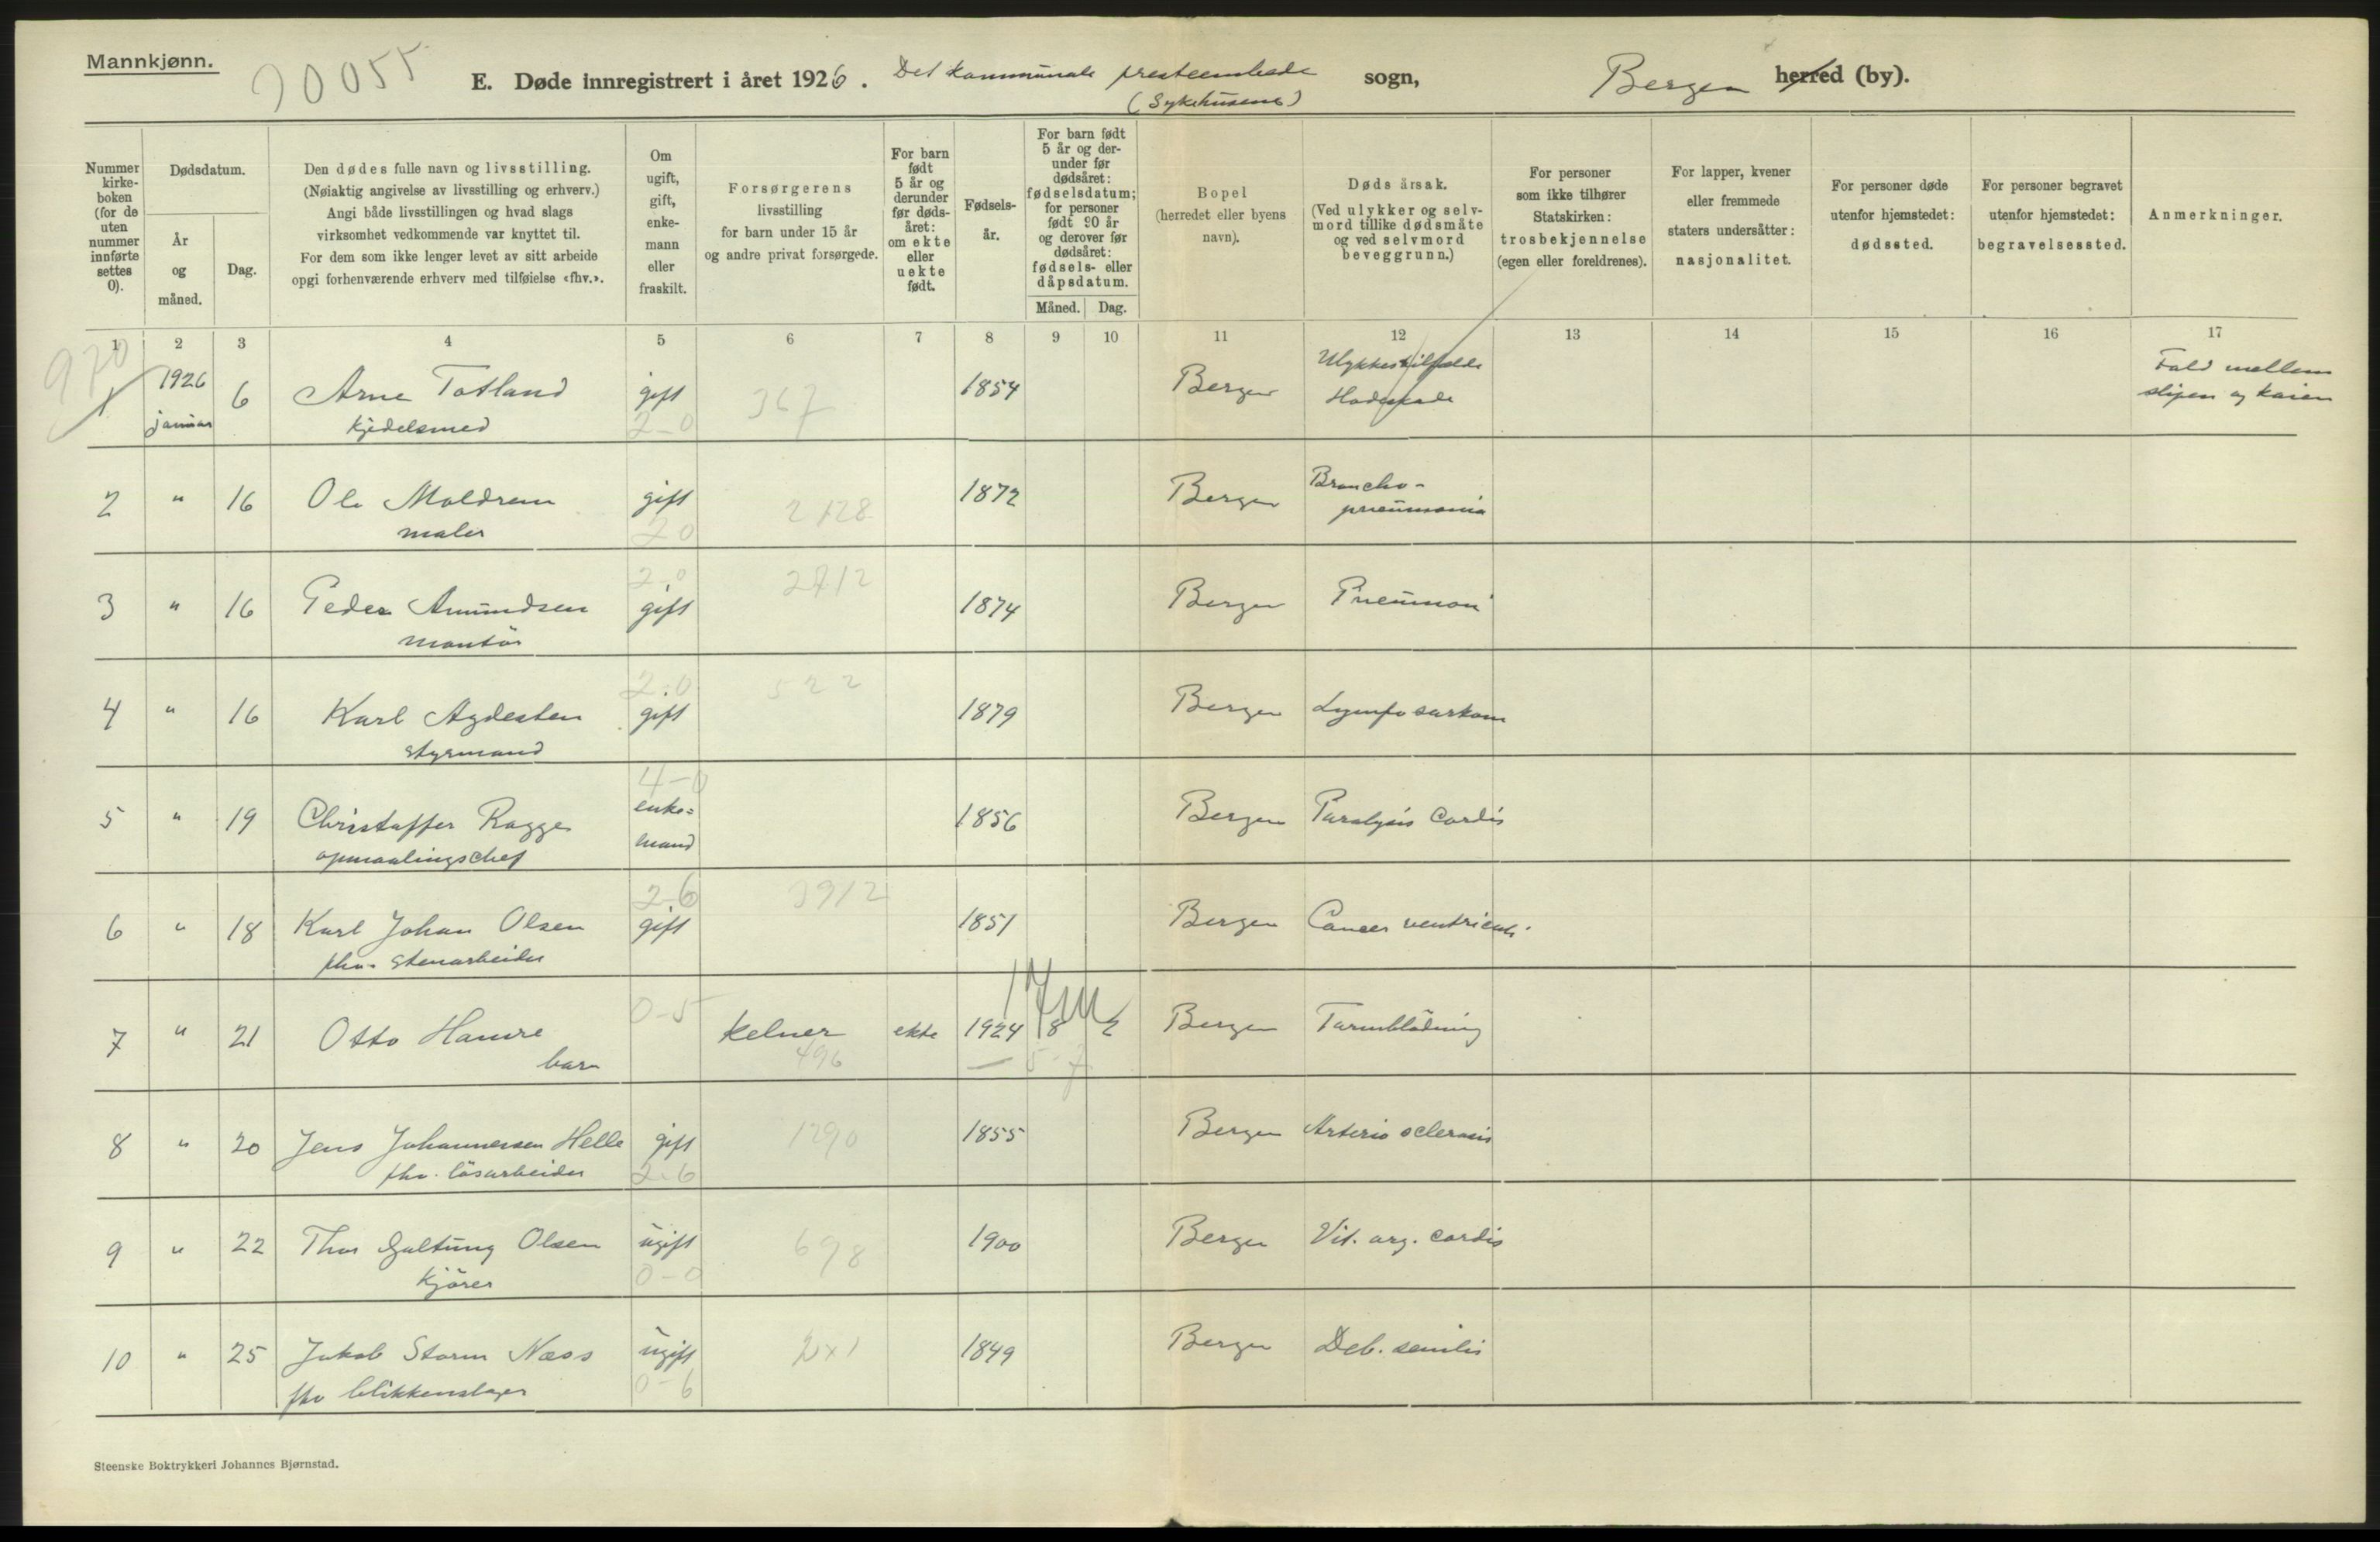 Mannkjønn.
20055
E. Døde innregistrert i året 1926. Det kommunale presteembede sogn, Bergen herred (by).
(Sykehusene)
Nummer kirke-boken (for de uten nummer innførte settes 0).
Dødsdatum.
År og måned.
Dag.
Den dødes fulle navn og livsstilling.
(Nøiaktig angivelse av livsstilling og erhverv.)
Angi både livsstillingen og hvad slags
virksomhet vedkommende var knyttet til.
For dem som ikke lenger levet av sitt arbeide
opgi forhenværende erhverv med tilføielse «fhv.».
Om ugift, gift, enke-mann eller fraskilt.
Forsørgerens
livsstilling
for barn under 15 år
og andre privat forsørgede.
For barn født 5 år og derunder før døds-året: om ekte eller uekte født.
Fødsels-år.
For barn født 5 år og der-under før dødsåret: fødselsdatum; for personer født 90 år og derover før dødsåret: fødsels- eller dåpsdatum.
Måned. Dag.
Bopel
(herredet eller byens
navn).
Døds årsak.
(Ved ulykker og selv-
mord tillike dødsmåte
og ved selvmord
beveggrunn.)
For personer
som ikke tilhører
Statskirken:
trosbekjennelse
(egen eller foreldrenes).
For lapper, kvener
eller fremmede
staters undersåtter:
nasjonalitet.
For personer døde
utenfor hjemstedet:
dødssted.
For personer begravet
utenfor hjemstedet:
begravelsessted.
Anmerkninger.
1 2 3 4 5 6 7 8 9 10 11 12 13 14 15 16 17
970
1 1926 januar 6 Arne Totland gift 367 1854 Bergen Ulykkestilfælde Fald mellem
kjedelsmed 2-0 Hodeskade slipen og kaien
2 " 16 Ole Moldrem gift 2128 1872 Bergen Broncho-
maler 20 pneumonia
2-0 2712
3 " 16 Peder Amundsen gift 1874 Bergen Pneumoni
montör
2.0 522
4 " 16 Karl Agdesten gift 1879 Bergen Lymfosarkom
styrmand
4-0
5 " 19 Christoffer Ragge enke= 1856 Bergen Paralysis cordis
opmaalingschef mand
2-6 3912
6 " 18 Karl Johan Olsen gift 1851 Bergen Cancer ventriculi
fhv. stenarbeider
0-5
7 " 21 Otto Hamre kelner ekte 1924 8 2 Bergen Tarmblödning
barn 496 – 5-7
8 " 20 Jens Johannessen Helle gift 1290 1855 Bergen Arterio sclerosis
fhv. lösarbeider 2.6
9 " 22 Thor Galtung Olsen ugift 698 1900 Bergen Vit. org. cordis
kjörer 0-0
10 " 25 Jakob Storm Næss ugift 2x1 1849 Bergen Deb. senilis
fhv blikkenslager 0-6
Steenske Boktrykkeri Johannes Bjørnstad.